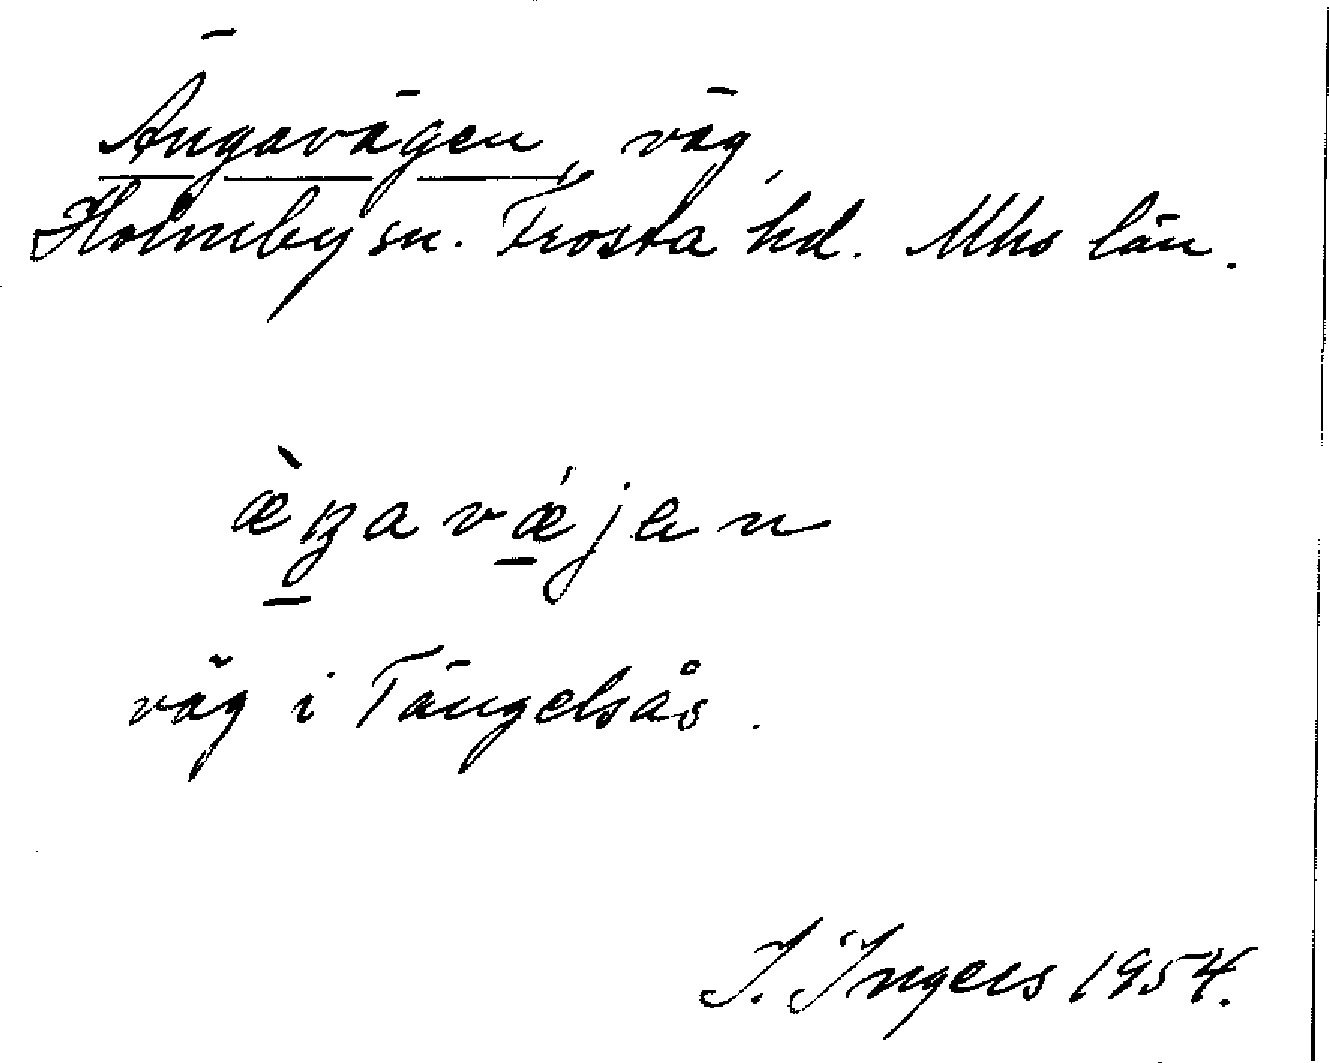 Ängavägen, väg
Holmby sn. Frosta hd. Mhs län.
æ̀ŋavǽjen
väg i Tängelsås.
I. Ingers 1954.